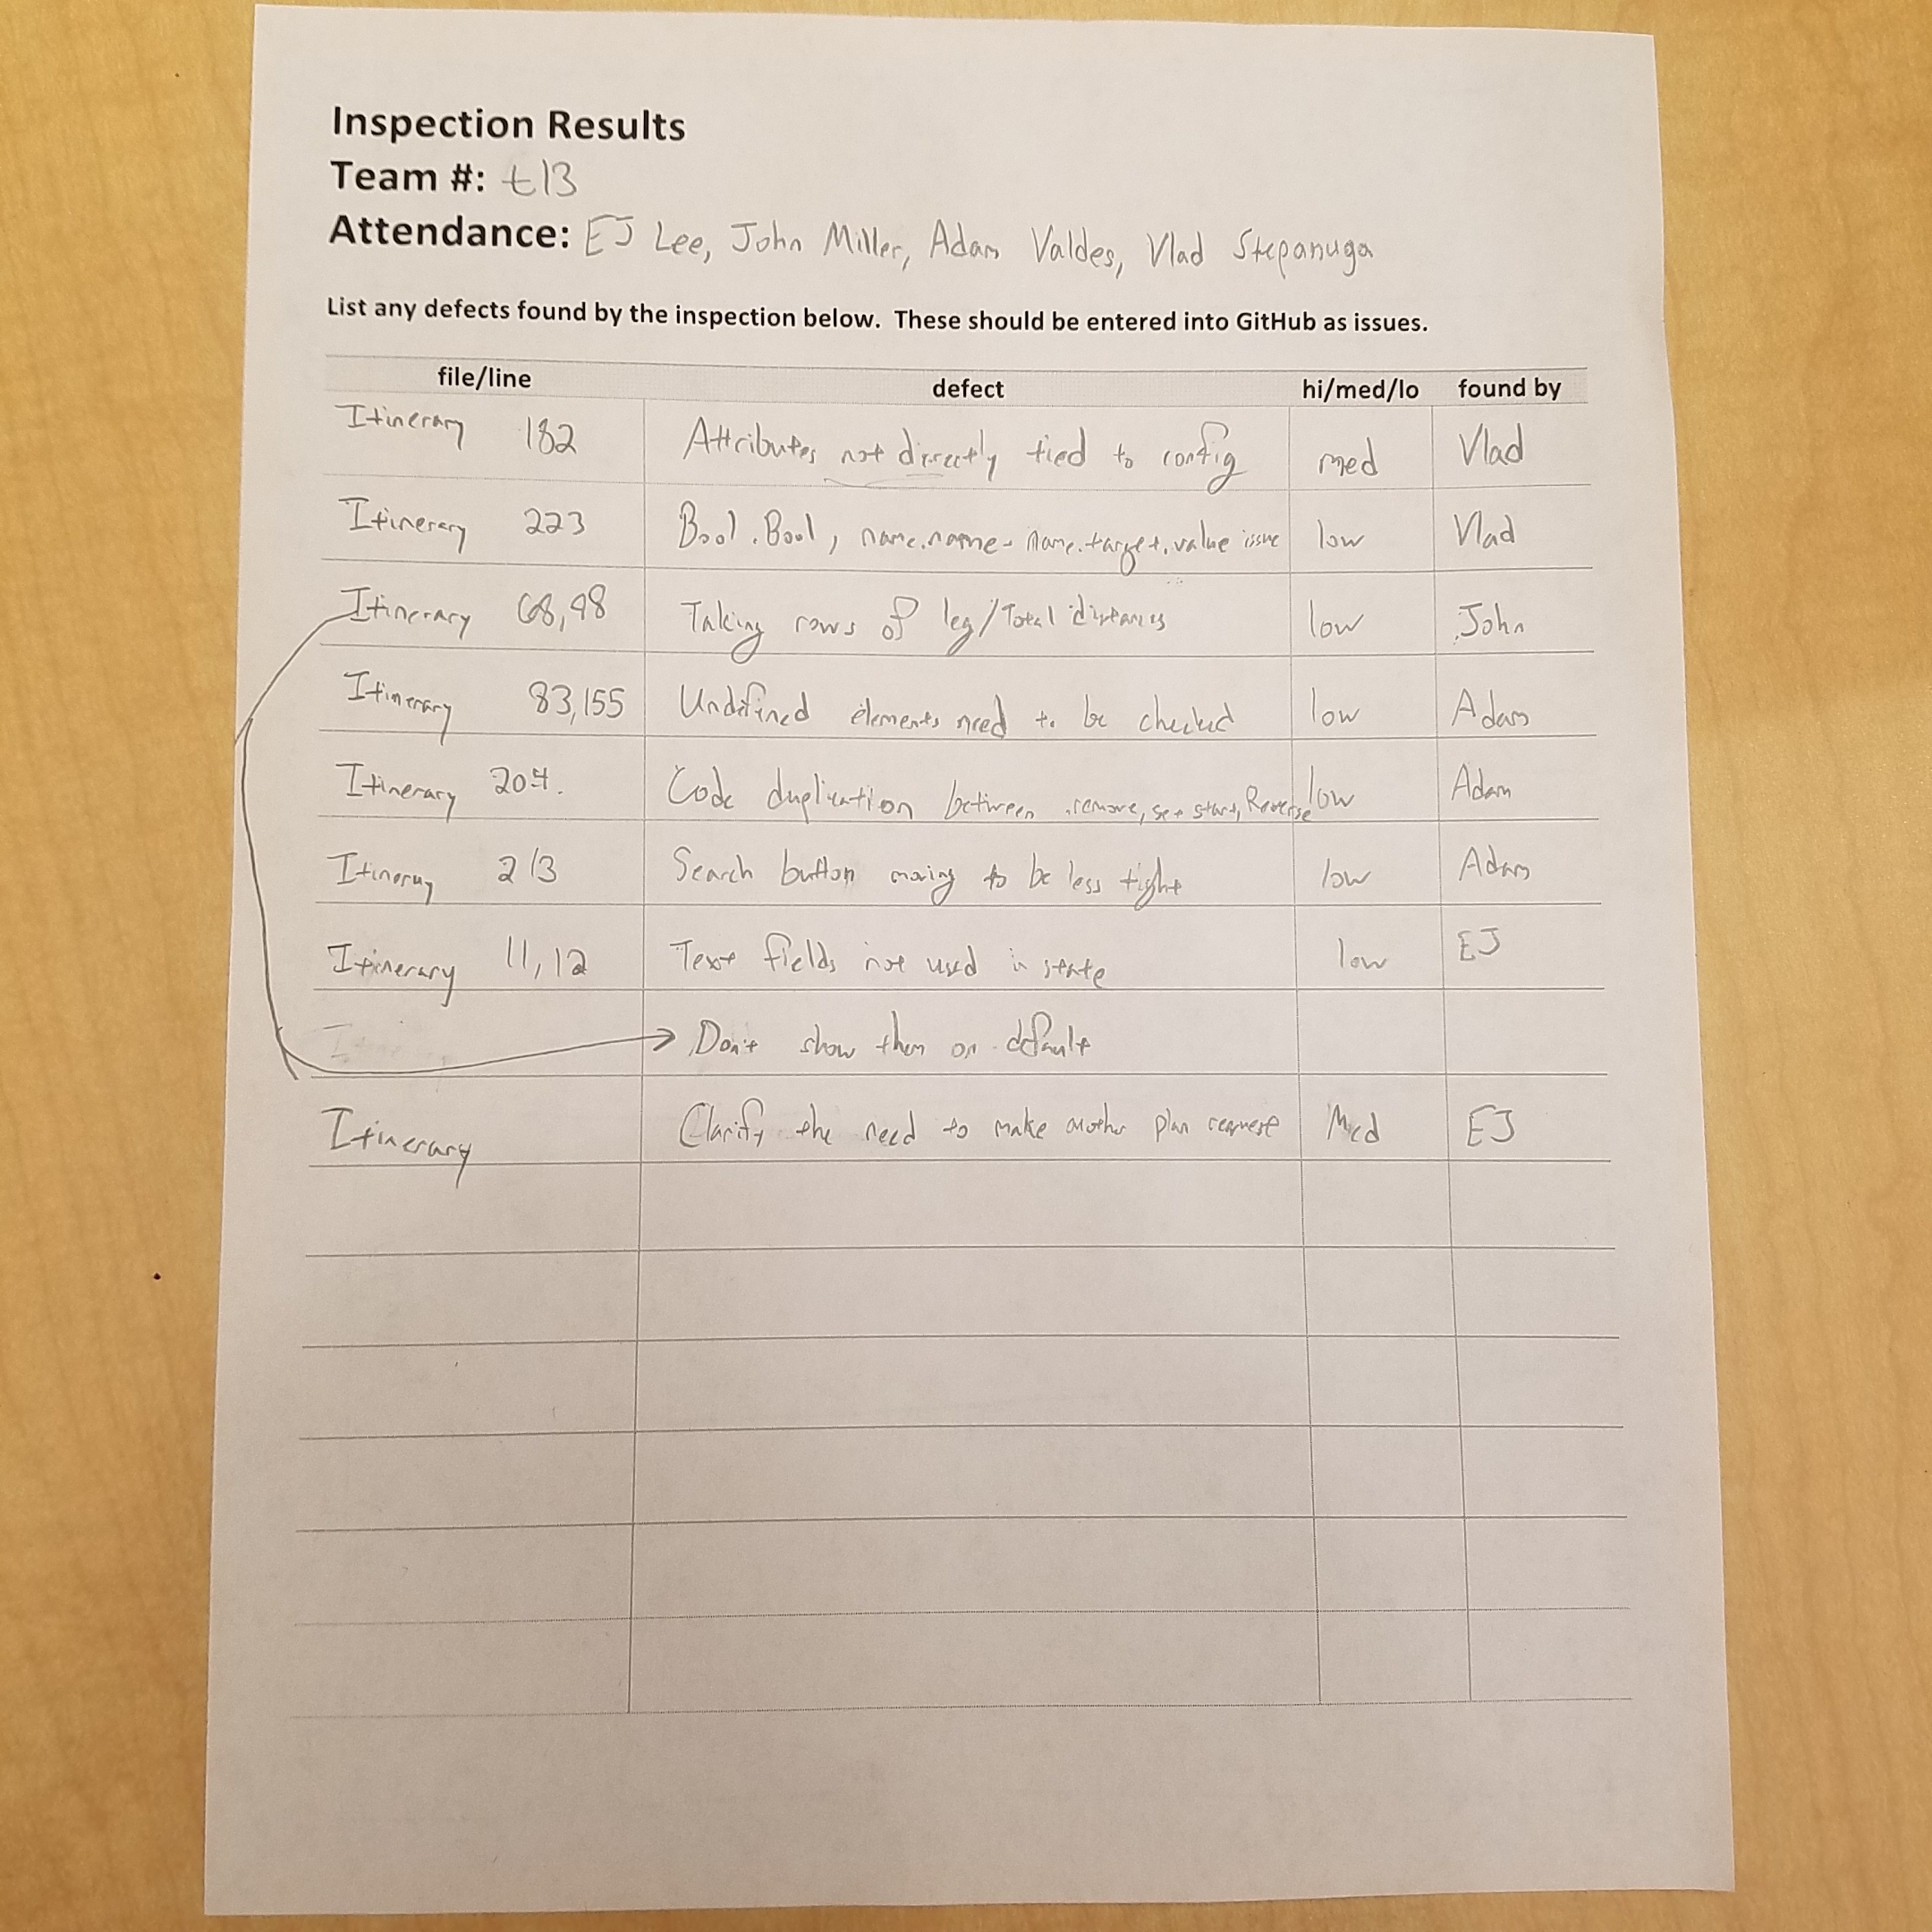 Inspection Results
Team #: t13
Attendance: EJ Lee, John Miller, Adam Valdes, Vlad Stepanuga
List any defects found by the inspection below. These should be entered into GitHub as issues.
file/line defect hi/med/lo found by
Itinerary 182 Attributes not directly tied to config med Vlad
Itinerary 223 Bool.Bool, name.name - name.target.value issue low Vlad
Itinerary 68,98 Taking rows of leg/Total distances low John
Itinerary 83,155 Undefined elements need to be checked low Adam
Itinerary 204. Code duplication between remove, set start, Reverse low Adam
Itinerary 213 Search button moving to be less tight low Adam
Itinerary 11,12 Text fields not used in state low EJ
Don't show them on default
Itinerary Clarify the need to make another plan request Med EJ